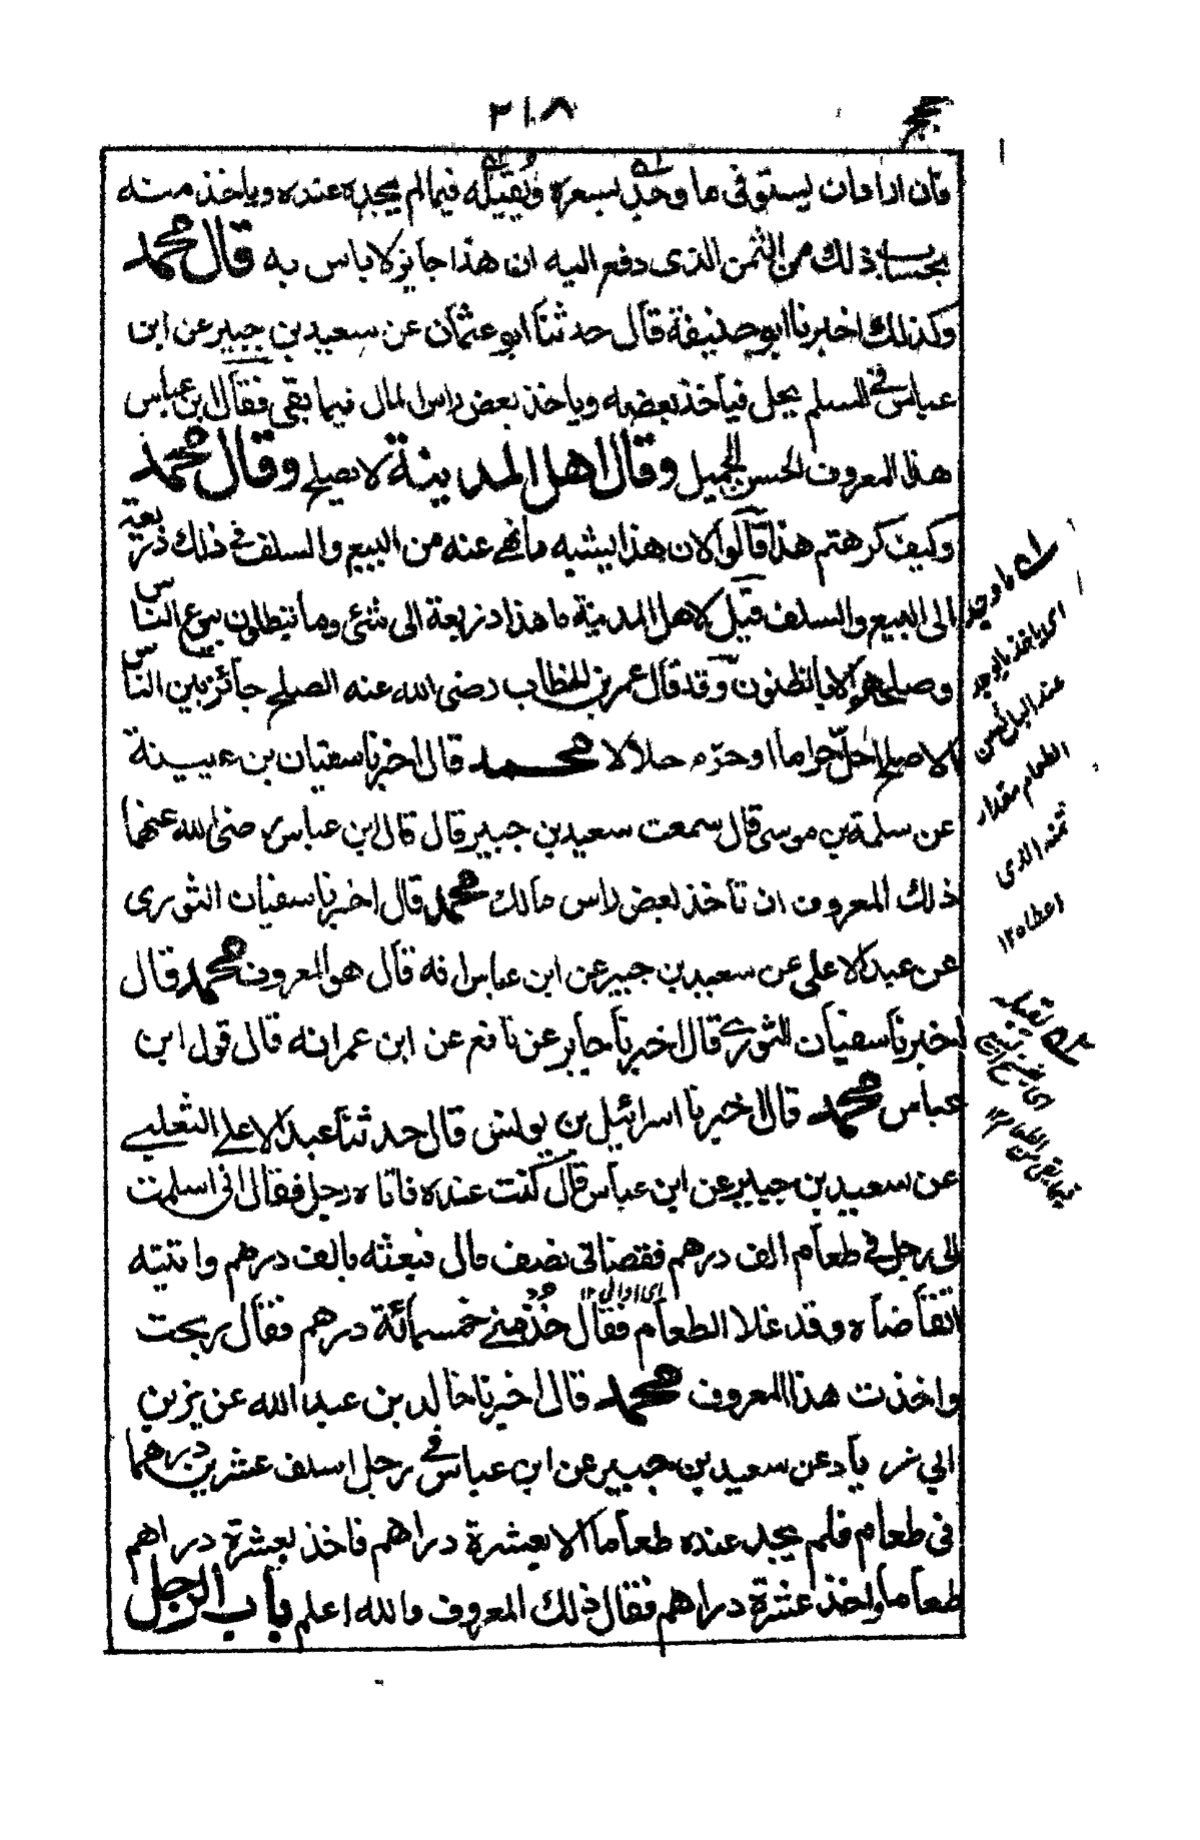 حج
٢١٨
فان ارادان يستوفى ما وجد بسعره ويقيله فيما لم يجده عنده وياخذ منه
بحساب ذلك من الثمن الذى دفع اليه ان هذا جايز لا باس به قال محمد
وكذلك اخبرنا ابو حنيفة قال حدثنا ابو عثمان عن سعيد بن جبير عن ابن
عباس فى السلم يحل فيأخذ بعضه وياخذ بعض راس المال فيما بقى فقال ابن عباس
هذا المعروف الحسن الجميل وقال اهل المدينة لا يصلح وقال محمد
وكيف كرهتم هذا قالوا لان هذا يشبه ما نهى عنه من البيع والسلف فى ذلك ذريعة
الى البيع والسلف قيل لاهل المدينة ما هذا ذريعة الى شئ وما تبطلون بيوع الناس
وصلح هؤلاء بالظنون وقد قال عمر بن الخطاب رضى الله عنه الصلح جائز بين الناس
الا صلح احلّ حراما او حرّم حلالا محمد قال اخبرنا سفيان بن عيينة
عن سلمة بن موسى قال سمعت سعيد بن جبير قال قال ابن عباس رضى الله عنهما
ذلك المعروف ان تأخذ بعض راس مالك محمد قال اخبرنا سفيان الثورى
عن عبد الاعلى عن سعيد بن جبير عن ابن عباس انه قال هو المعروف محمد قال
اخبرنا سفيان الثورى قال اخبرنا جابر عن نافع عن ابن عمر انه قال قول ابن
عباس محمد قال اخبرنا اسرائيل بن يونس قال حدثنا عبد الاعلى الثعلبى
عن سعيد بن جبير عن ابن عباس قال كنت عنده فاتاه رجل فقال انى اسلمت
الى رجل فى طعام الف درهم فقضانى نصف مالى فبعثه بالف درهم واتيته
اتقاضاه وقد غلا الطعام فقال خذ منى خمسمائة درهم فقال ربحت
واخذت هذا المعروف محمد قال اخبرنا خالد بن عبد الله عن يزيد بن
ابي زياد عن سعيد بن جبير عن ابن عباس فى رجل اسلف عشرين درهما
فى طعام فلم يجد عنده طعاما الا بعشرة دراهم فاخذ بعشرة دراهم
طعاما واخذ عشرة دراهم فقال ذلك المعروف والله اعلم باب الرجل
اى ما وجد
اى ياخذ ما وجد
عند البائع من
الطعام مقدار
ثمنه الذى
اعطاه ١٢
يقيله
اى يفسخ البيع
فيما بقى من الطعام ١٢